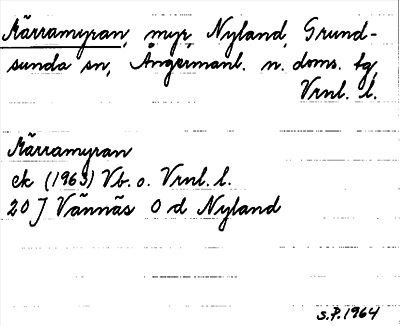 Kärramyran, myr, Nyland, Grund-
sunda sn, Ångermanl. n. doms. tg,
Vrnl. l.
Kärramyran
ek (1963) Vb. o. Vrnl. l.
20 J Vännäs 0 d Nyland
S.P. 1964